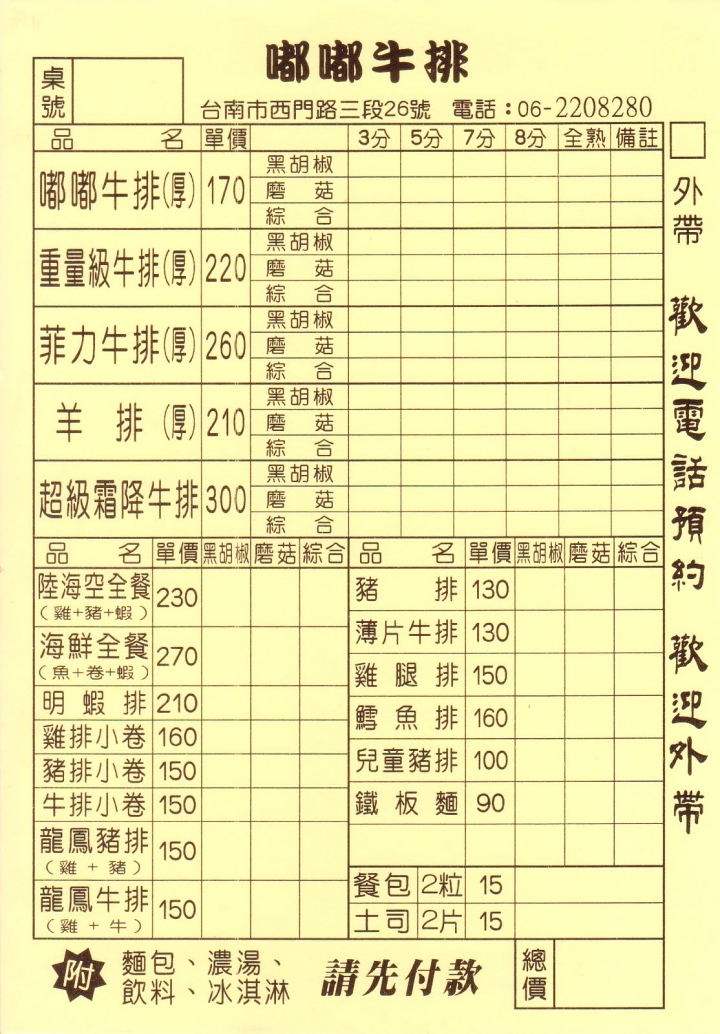 嘟嘟牛排
桌號
台南市西門路三段26號 電話：06-2208280
品名 單價 3分 5分 7分 8分 全熟 備註
嘟嘟牛排(厚) 170 黑胡椒
磨菇
綜合
重量級牛排(厚) 220 黑胡椒
磨菇
綜合
菲力牛排(厚) 260 黑胡椒
磨菇
綜合
羊排(厚) 210 黑胡椒
磨菇
綜合
超級霜降牛排 300 黑胡椒
磨菇
綜合
品名 單價 黑胡椒 磨菇 綜合
陸海空全餐 230
(雞+豬+蝦)
海鮮全餐 270
(魚+卷+蝦)
明蝦排 210
雞排小卷 160
豬排小卷 150
牛排小卷 150
龍鳳豬排 150
(雞+豬)
龍鳳牛排 150
(雞+牛)
品名 單價 黑胡椒 磨菇 綜合
豬排 130
薄片牛排 130
雞腿排 150
鱈魚排 160
兒童豬排 100
鐵板麵 90
餐包 2粒 15
土司 2片 15
外帶
歡迎電話預約 歡迎外帶
附 麵包、濃湯、
飲料、冰淇淋
請先付款
總價